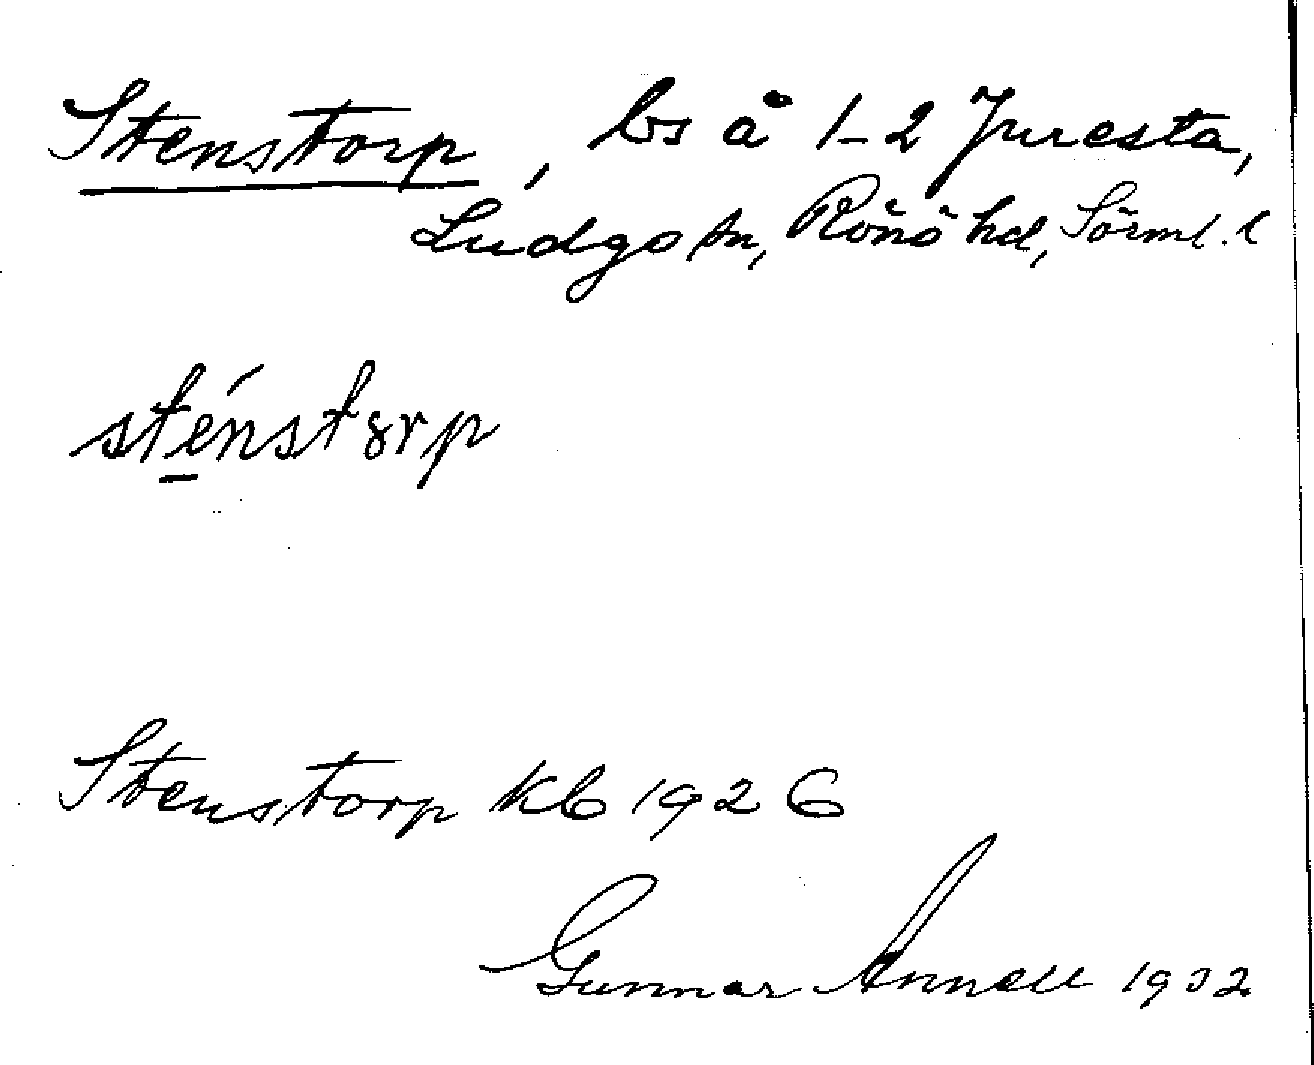 Stenstorp, bs å 1-2 Juresta,
Ludgo sn, Rönö hd, Sörml. l
sténst8rp
Stenstorp Kb 1926
Gunnar Annell 1932